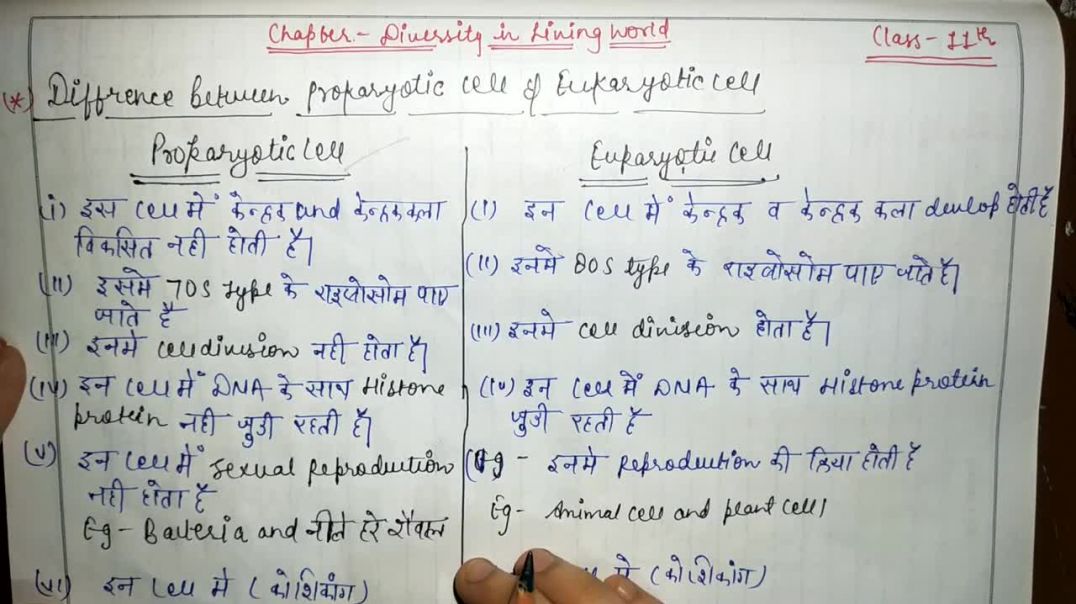 Chapter:- Diversity in Lining World
Class- 11th
(*) Diffrence between prokaryotic cell & Eukaryotic cell
Prokaryotic Cell
(i) इस Cell में केन्द्रक and केन्द्रककला
विकसित नही होती है।
(ii) इसमे 70S type के राइबोसोम पाए
जाते है
(iii) इनमे cell division नही होता है।
(iv) इन Cell में DNA के साथ Histone
protein नही जुडी रहती है।
(v) इन Cell में sexual Reproduction
नही होता है
Eg- Bacteria and नीले हरे शैवाल
(vi) इन Cell मे (कोशिकांग)
Eukaryotic Cell
(i) इन Cell में केन्द्रक व केन्द्रक कला devlop होती है
(ii) इनमे 80S type के राइबोसोम पाए जाते है।
(iii) इनमे cell division होता है।
(iv) इन Cell में DNA के साथ Histone protein
जुडी रहती है
- इनमे Reproduction की क्रिया होती है
Eg- Animal cell and plant cell
मे (कोशिकांग)